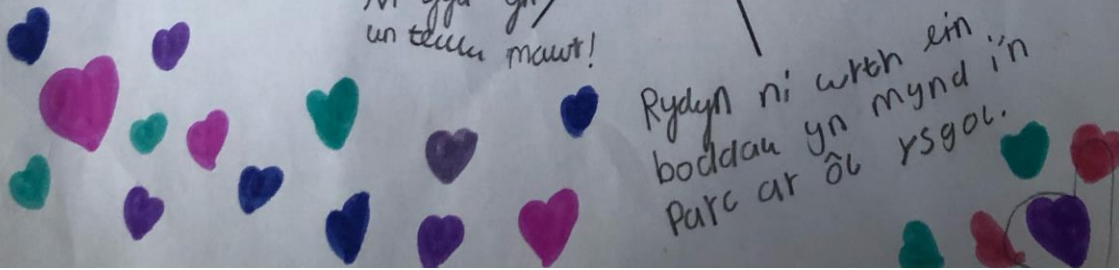 un teulu mawr!
Rydyn ni wrth ein
boddau yn mynd i'n
Parc ar ôl ysgol.